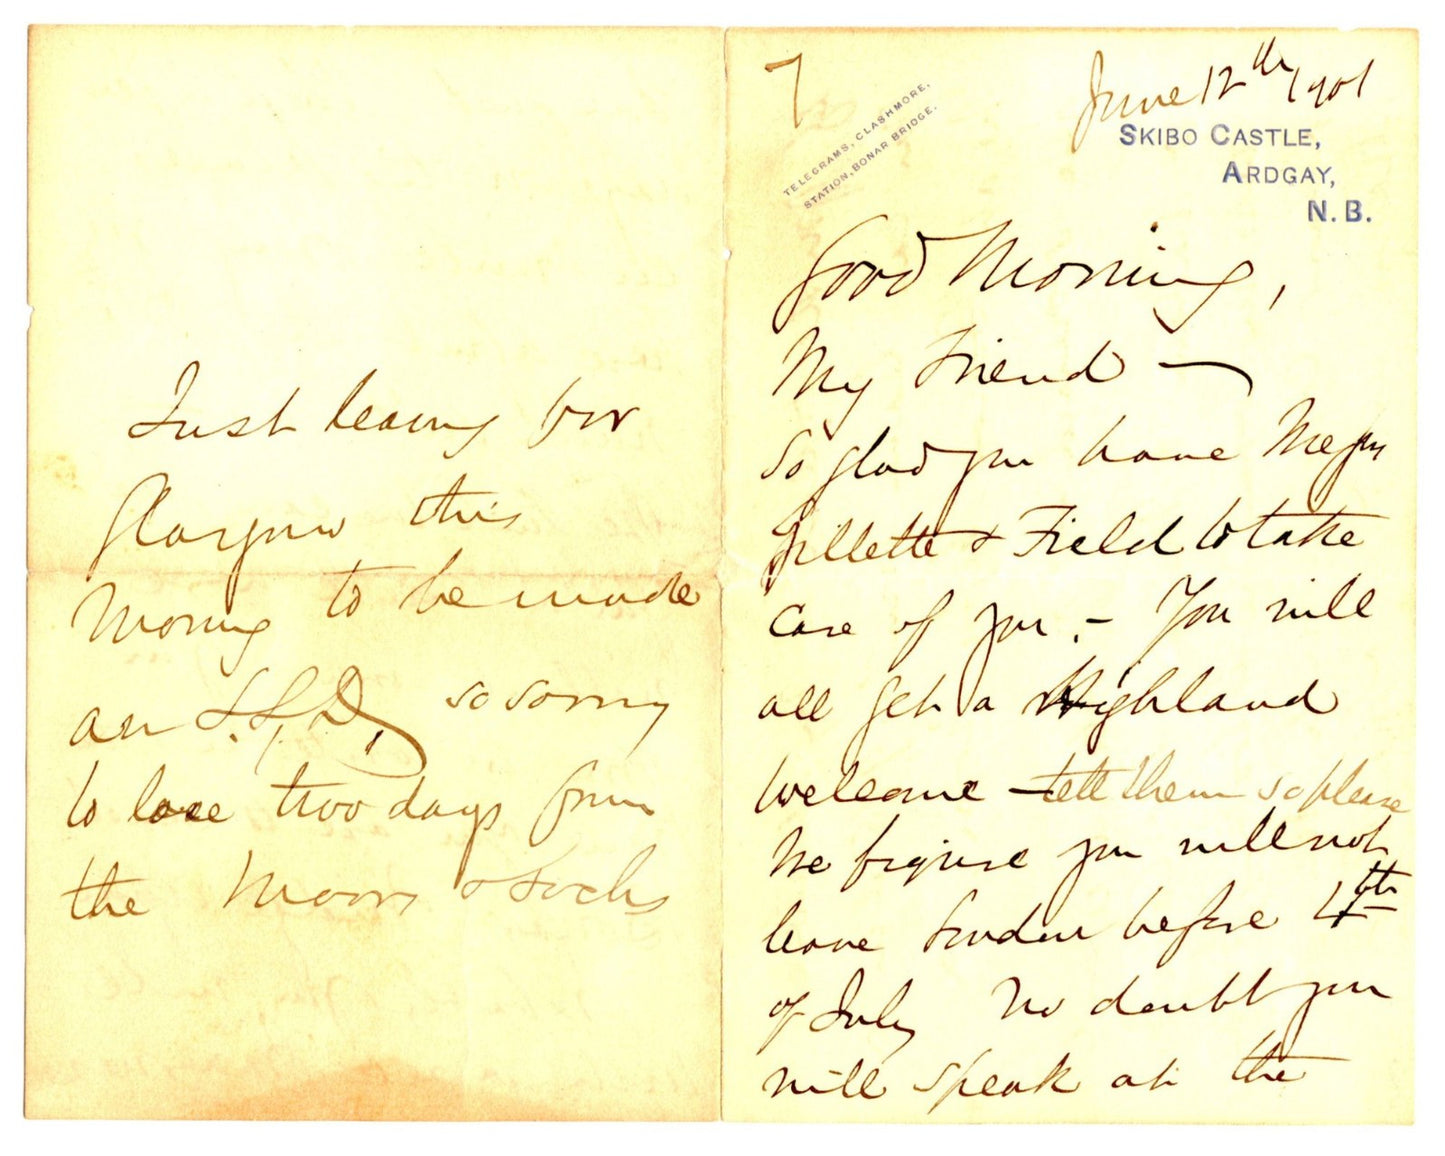 7
June 12th 1901
TELEGRAMS, CLASHMORE,
STATION, BONAR BRIDGE.
SKIBO CASTLE,
ARDGAY,
N.B.
Good Morning,
My Friend —
So glad you have Messrs
Gillette & Field to take
care of you. – You will
all get a Highland
welcome – tell them so please
We figure you will not
leave London before 4th
of July No doubt you
will speak at the
Just leaving for
Glasgow this
Morning to be made
an L.L.D, so sorry
to lose two days from
the Moors & Lochs